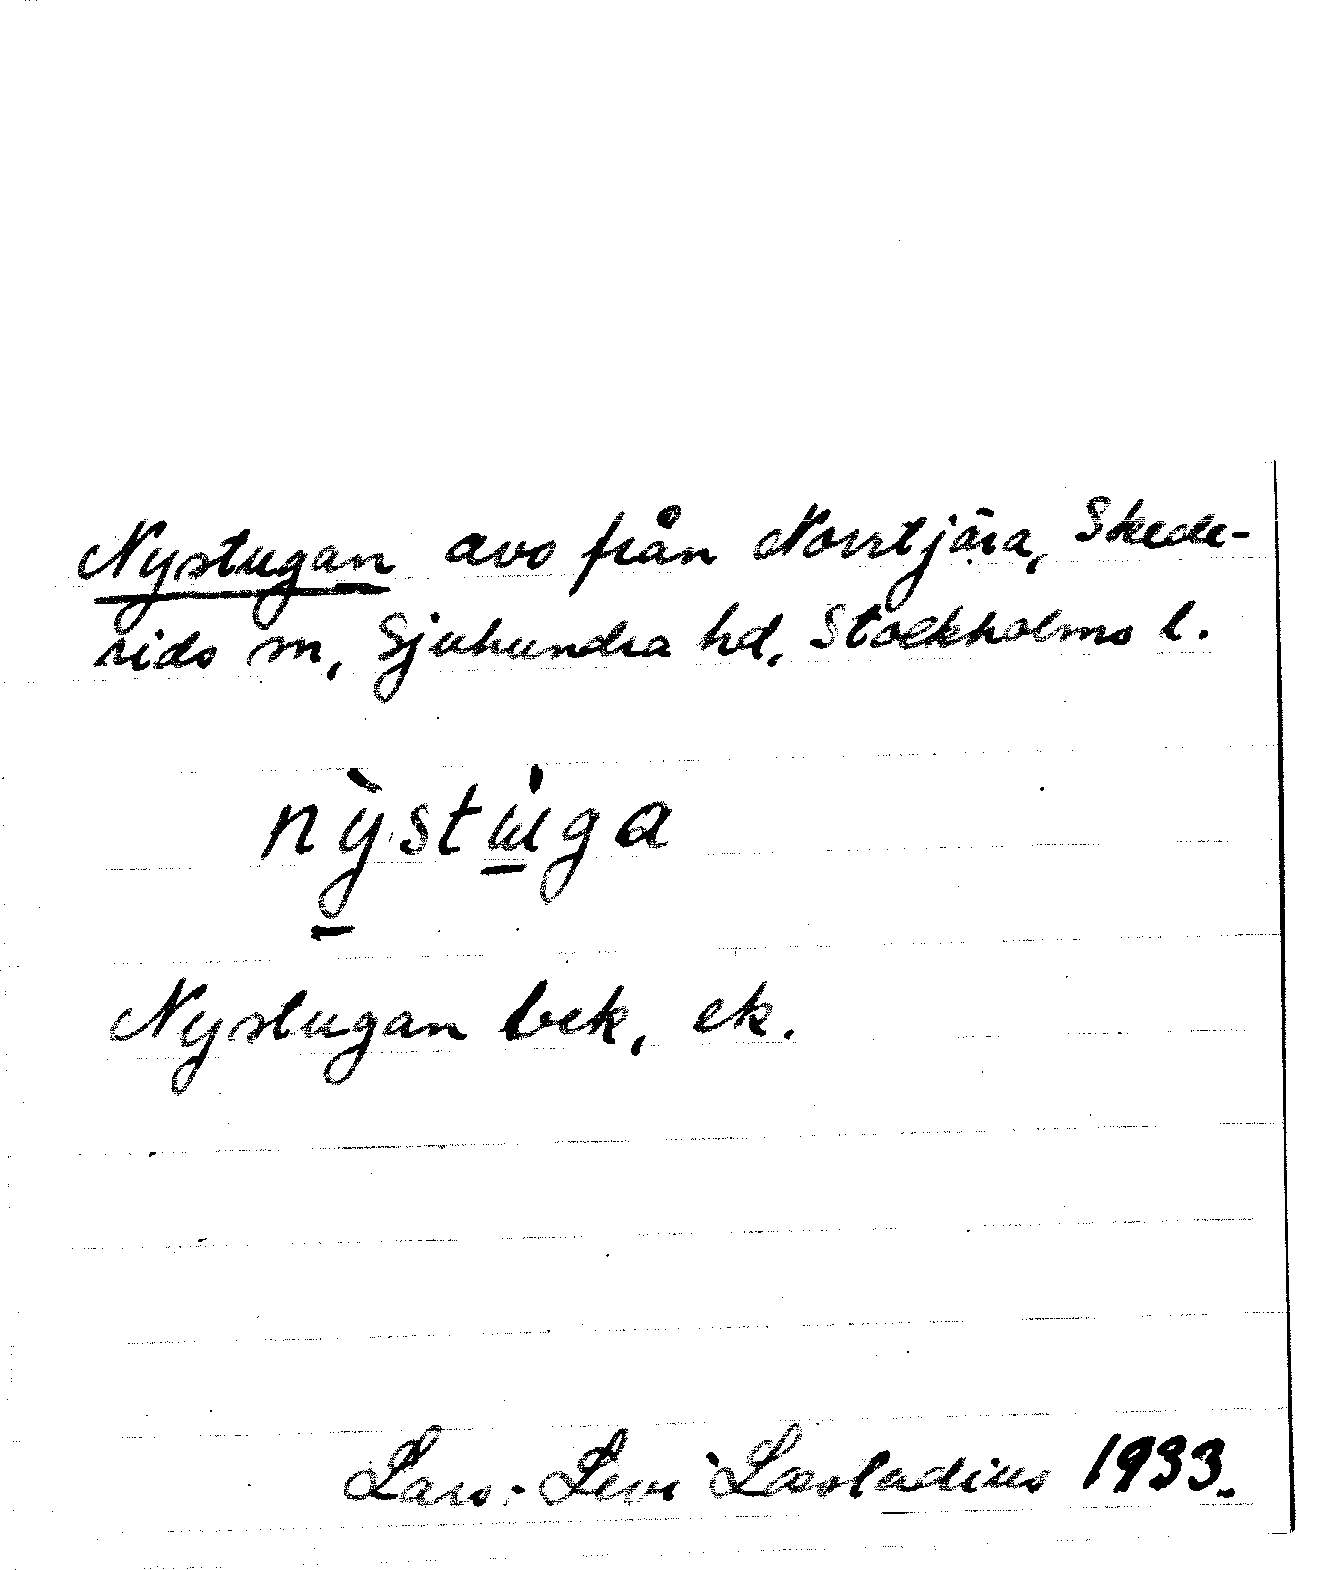 Nystugan avs från Norrtjära, Skede-
rids sn, Sjuhundra hd, Stockholms l.
nỳ̠stu̠̇ga
Nystugan bek, ek.
Lars-Levi Læstadius 1933.